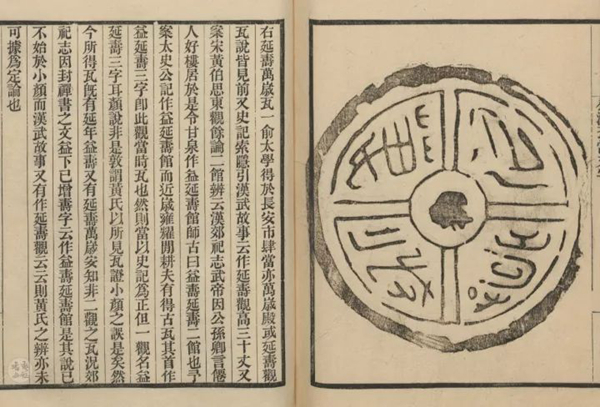 延壽萬歲
右延壽萬歲瓦一俞太學得於長安市肆當亦萬歲殿或延壽觀
瓦說皆見前又史記索隱引漢武故事云作延壽觀高三十丈又
案宋黃伯思東觀餘論二館辨云漢郊祀志武帝因公孫卿言僊
人好樓居於是令甘泉作益延壽館師古曰益壽延壽二館也予
案太史公記作益延壽館而近歲雍耀閒耕夫有得古瓦其首作
益延壽三字即此觀當時瓦也然則當以史記爲正但一觀名益
延壽三字耳顏說非是敦謂黃氏以所見瓦證小顏之誤是矣然
今所得瓦旣有延年益壽又有延壽萬歲安知非二觀之瓦況郊
祀志因封禪書之文益下已增壽字云作益壽延壽館是其說已
不始於小顏而漢武故事又有作延壽觀云云則黃氏之辨亦未
可據爲定論也